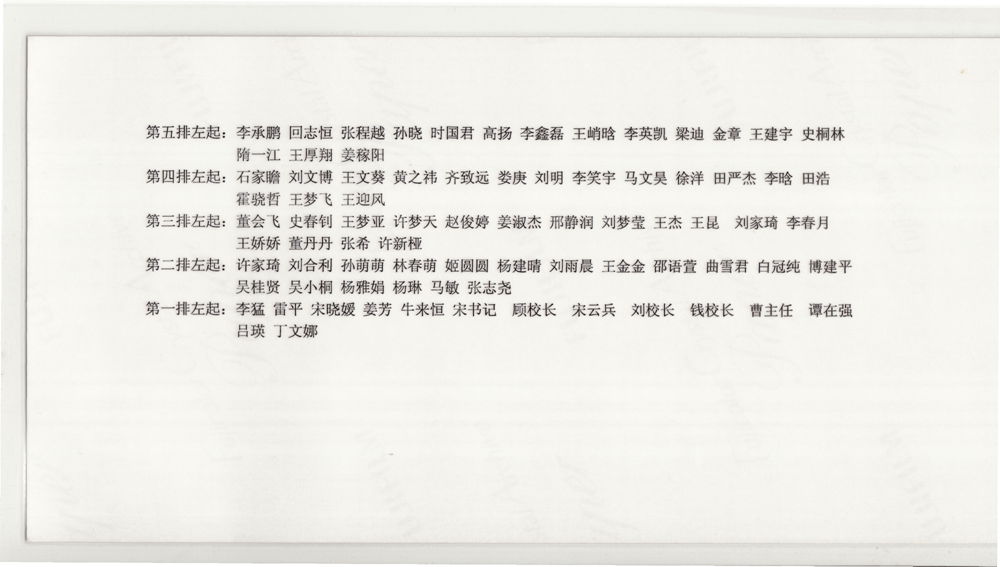 第五排左起：李承鹏 回志恒 张程越 孙晓 时国君 高扬 李鑫磊 王峭晗 李英凯 梁迪 金章 王建宇 史桐林
隋一江 王厚翔 姜稼阳
第四排左起：石家瞻 刘文博 王文葵 黄之祎 齐致远 娄庚 刘明 李笑宇 马文昊 徐洋 田严杰 李晗 田浩
霍骁哲 王梦飞 王迎风
第三排左起：董会飞 史春钊 王梦亚 许梦天 赵俊婷 姜淑杰 邢静润 刘梦莹 王杰 王昆 刘家琦 李春月
王娇娇 董丹丹 张希 许新桠
第二排左起：许家琦 刘合利 孙萌萌 林春萌 姬圆圆 杨建晴 刘雨晨 王金金 邵语萱 曲雪君 白冠纯 博建平
吴桂贤 吴小桐 杨雅娟 杨琳 马敏 张志尧
第一排左起：李猛 雷平 宋晓媛 姜芳 牛来恒 宋书记 顾校长 宋云兵 刘校长 钱校长 曹主任 谭在强
吕瑛 丁文娜